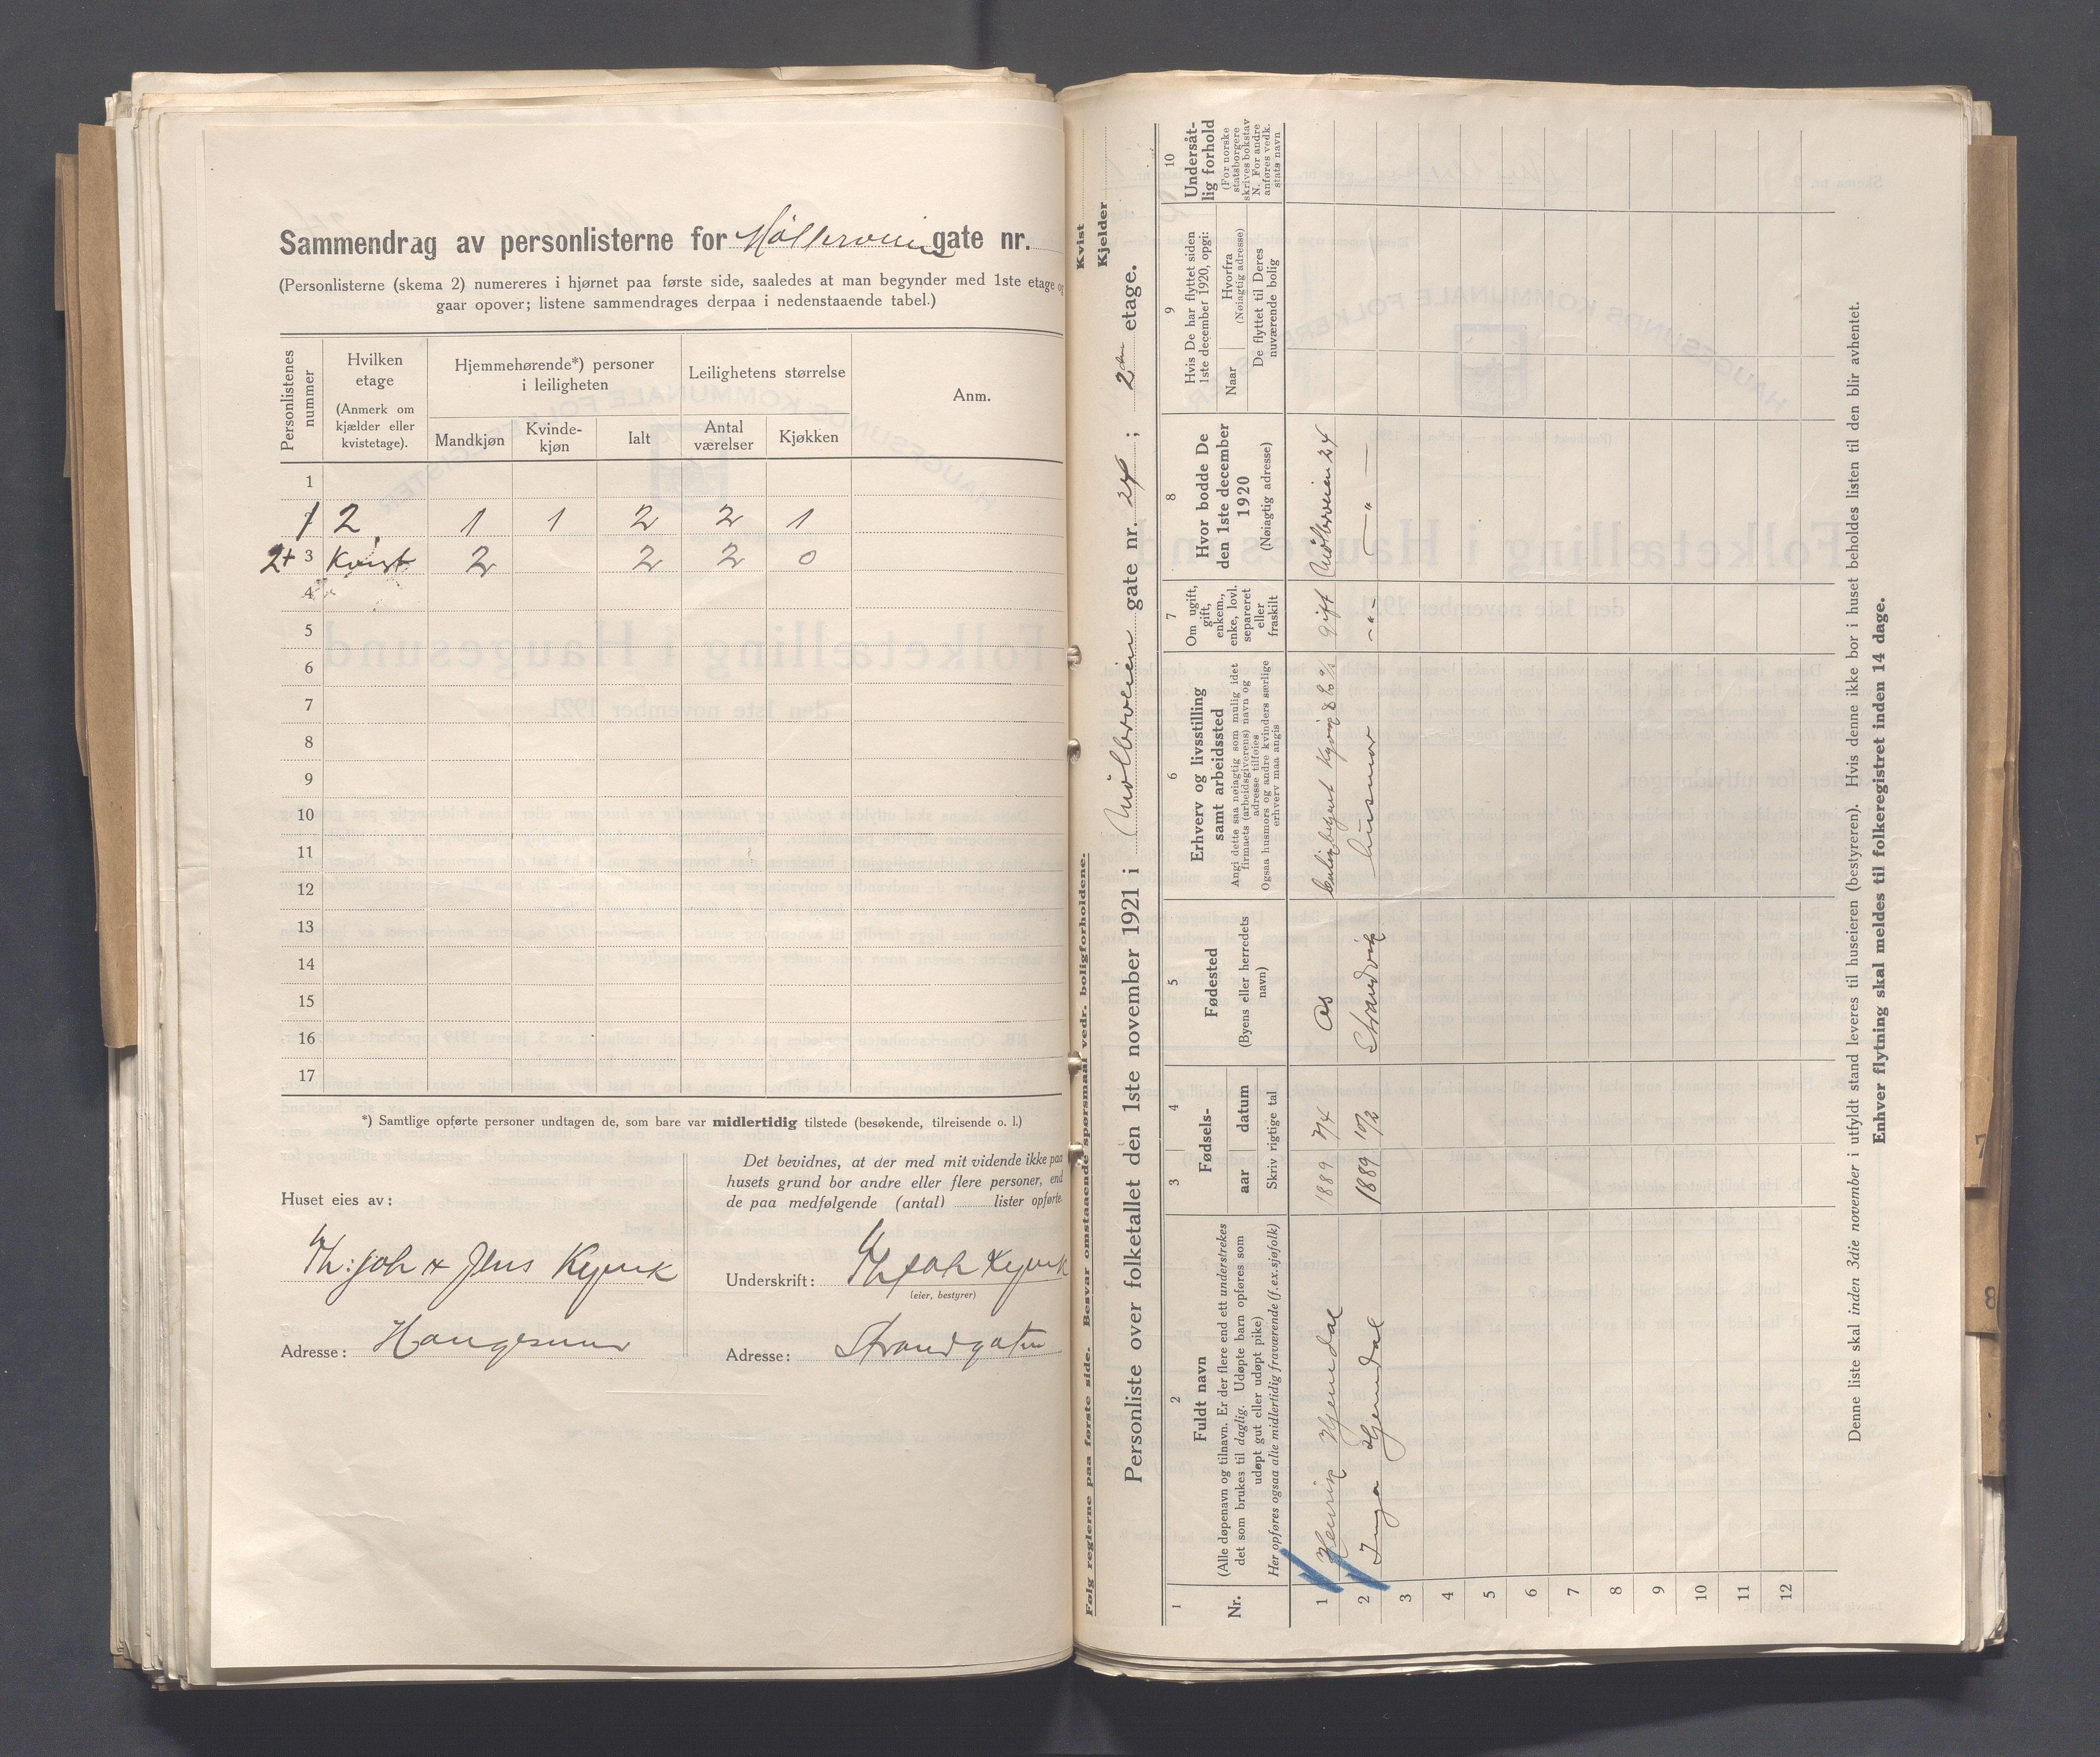 Sammendrag av personlisterne for Møllerveien gate nr.
(Personlisterne (skema 2) numereres i hjørnet paa første side, saaledes at man begynder med 1ste etage og
gaar opover; listene sammendrages derpaa i nedenstaaende tabel.)
Personlistenes nummer
Hvilken etage
(Anmerk om kjælder eller kvistetage).
Hjemmehørende*) personer i leiligheten
Leilighetens størrelse
Anm.
Mandkjøn
Kvinde-kjøn
Ialt
Antal værelser
Kjøkken
1
1 2 1 1 2 2 1
2+ 3 Kvist 2 2 2 0
4
5
6
7
8
9
10
11
12
13
14
15
16
17
*) Samtlige opførte personer undtagen de, som bare var midlertidig tilstede (besøkende, tilreisende o. l.)
Huset eies av:
Th: Joh & Jens Kyvik
Adresse: Haugesund
Det bevidnes, at der med mit vidende ikke paa
husets grund bor andre eller flere personer, end
de paa medfølgende (antal) lister opførte.
Underskrift: Th Joh Kyvik
(eier, bestyrer)
Adresse: Strandgaten
Følg reglerne paa første side. Besvar omstaaende spørsmaal vedr. boligforholdene.
Kvist
Kjelder
Personliste over folketallet den 1ste november 1921 i Møllerveien gate nr. 24; 2den etage.
1
Nr.
2
Fuldt navn
(Alle døpenavn og tilnavn. Er der flere end ett understrekes
det som brukes til daglig. Udøpte barn opføres som
udøpt gut eller udøpt pike)
Her opføres ogsaa alle midlertidig fraværende (f. ex. sjøfolk)
3 4
Fødsels-
aar datum
Skriv rigtige tal
5
Fødested
(Byens eller herredets navn)
6
Erhverv og livsstilling
samt arbeidssted
Angi dette saa nøiagtig som mulig idet
firmaets (arbeidsgiverens) navn og
adresse tilføies
Ogsaa husmors og andre kvinders særlige
erhverv maa angis
7
Om ugift,
gift,
enkem.,
enke, lovl.
separeret
eller
fraskilt
8
Hvor bodde De
den 1ste december
1920
(Nøiagtig adresse)
9
Hvis De har flyttet siden
1ste december 1920, opgi:
Naar
Hvorfra
(Nøiagtig adresse)
De flyttet til Deres
nuværende bolig
10
Undersåt-
lig forhold
(For norske
statsborgere
skrives bokstav
N. For andre
anføres vedk.
stats navn
1 Henrik Hjemdal 1889 As gift Møllerveien 24
2 Inga Hjemdal 1889 10/2 Strandvik husmor -"- -"-
3
4
5
6
7
8
9
10
11
12
Denne liste skal inden 3die november i utfyldt stand leveres til huseieren (bestyreren). Hvis denne ikke bor i huset beholdes listen til den blir avhentet.
Enhver flytning skal meldes til folkeregistret inden 14 dage.
7
8